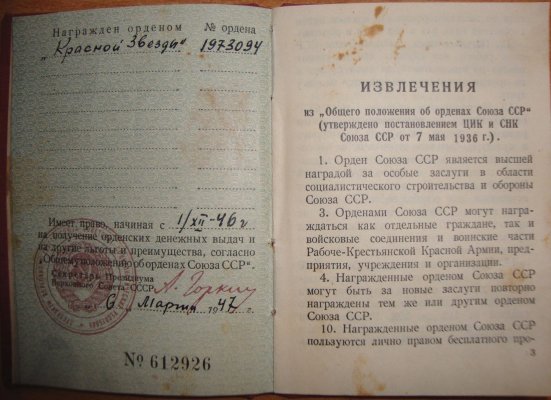 Награжден орденом № ордена
„Красной Звезды“ 1973094
Имеет право, начиная с 1/XII-46 г
на получение орденских денежных выдач и
на другие льготы и преимущества, согласно
„Общему положению об орденах Союза ССР“.
Секретарь Президиума
Верховного Совета СССР А. Горкин
6 Марта 1947
№ 612926
ИЗВЛЕЧЕНИЯ
из „Общего положения об орденах Союза ССР“
(утверждено постановлением ЦИК и СНК
Союза ССР от 7 мая 1936 г.).
1. Орден Союза ССР является высшей
наградой за особые заслуги в области
социалистического строительства и обороны
Союза ССР.
3. Орденами Союза ССР могут награж-
даться как отдельные граждане, так
и войсковые соединения и воинские части
Рабоче-Крестьянской Красной Армии, пред-
приятия, учреждения и организации.
4. Награжденные орденом Союза ССР
могут быть за новые заслуги повторно
награждены тем же или другим орденом
Союза ССР.
10. Награжденные орденом Союза ССР
пользуются лично правом бесплатного про-
3